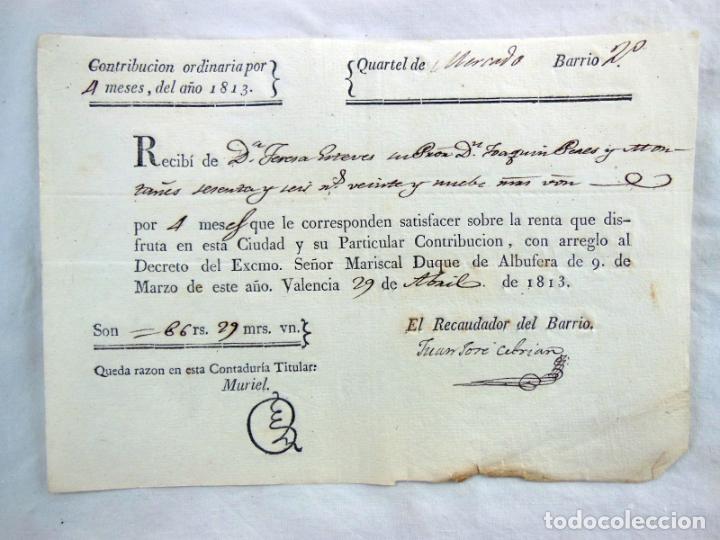 Contribucion ordinaria por
4 meses, del año 1813.
Quartel de Mercado Barrio 2º
Recibí de Dª Teresa Esteves su Pror Dn Joaquin Peres y Mon-
tañes sesenta y seis rs veinte y nuebe mrs von
por 4 meses que le corresponden satisfacer sobre la renta que dis-
fruta en esta Ciudad y su Particular Contribucion, con arreglo al
Decreto del Excmo. Señor Mariscal Duque de Albufera de 9. de
Marzo de este año. Valencia 29 de Abril de 1813.
Son = 66 rs. 29 mrs. vn.
El Recaudador del Barrio.
Juan José Cebrian
Queda razon en esta Contaduría Titular:
Muriel.
todocoleccion